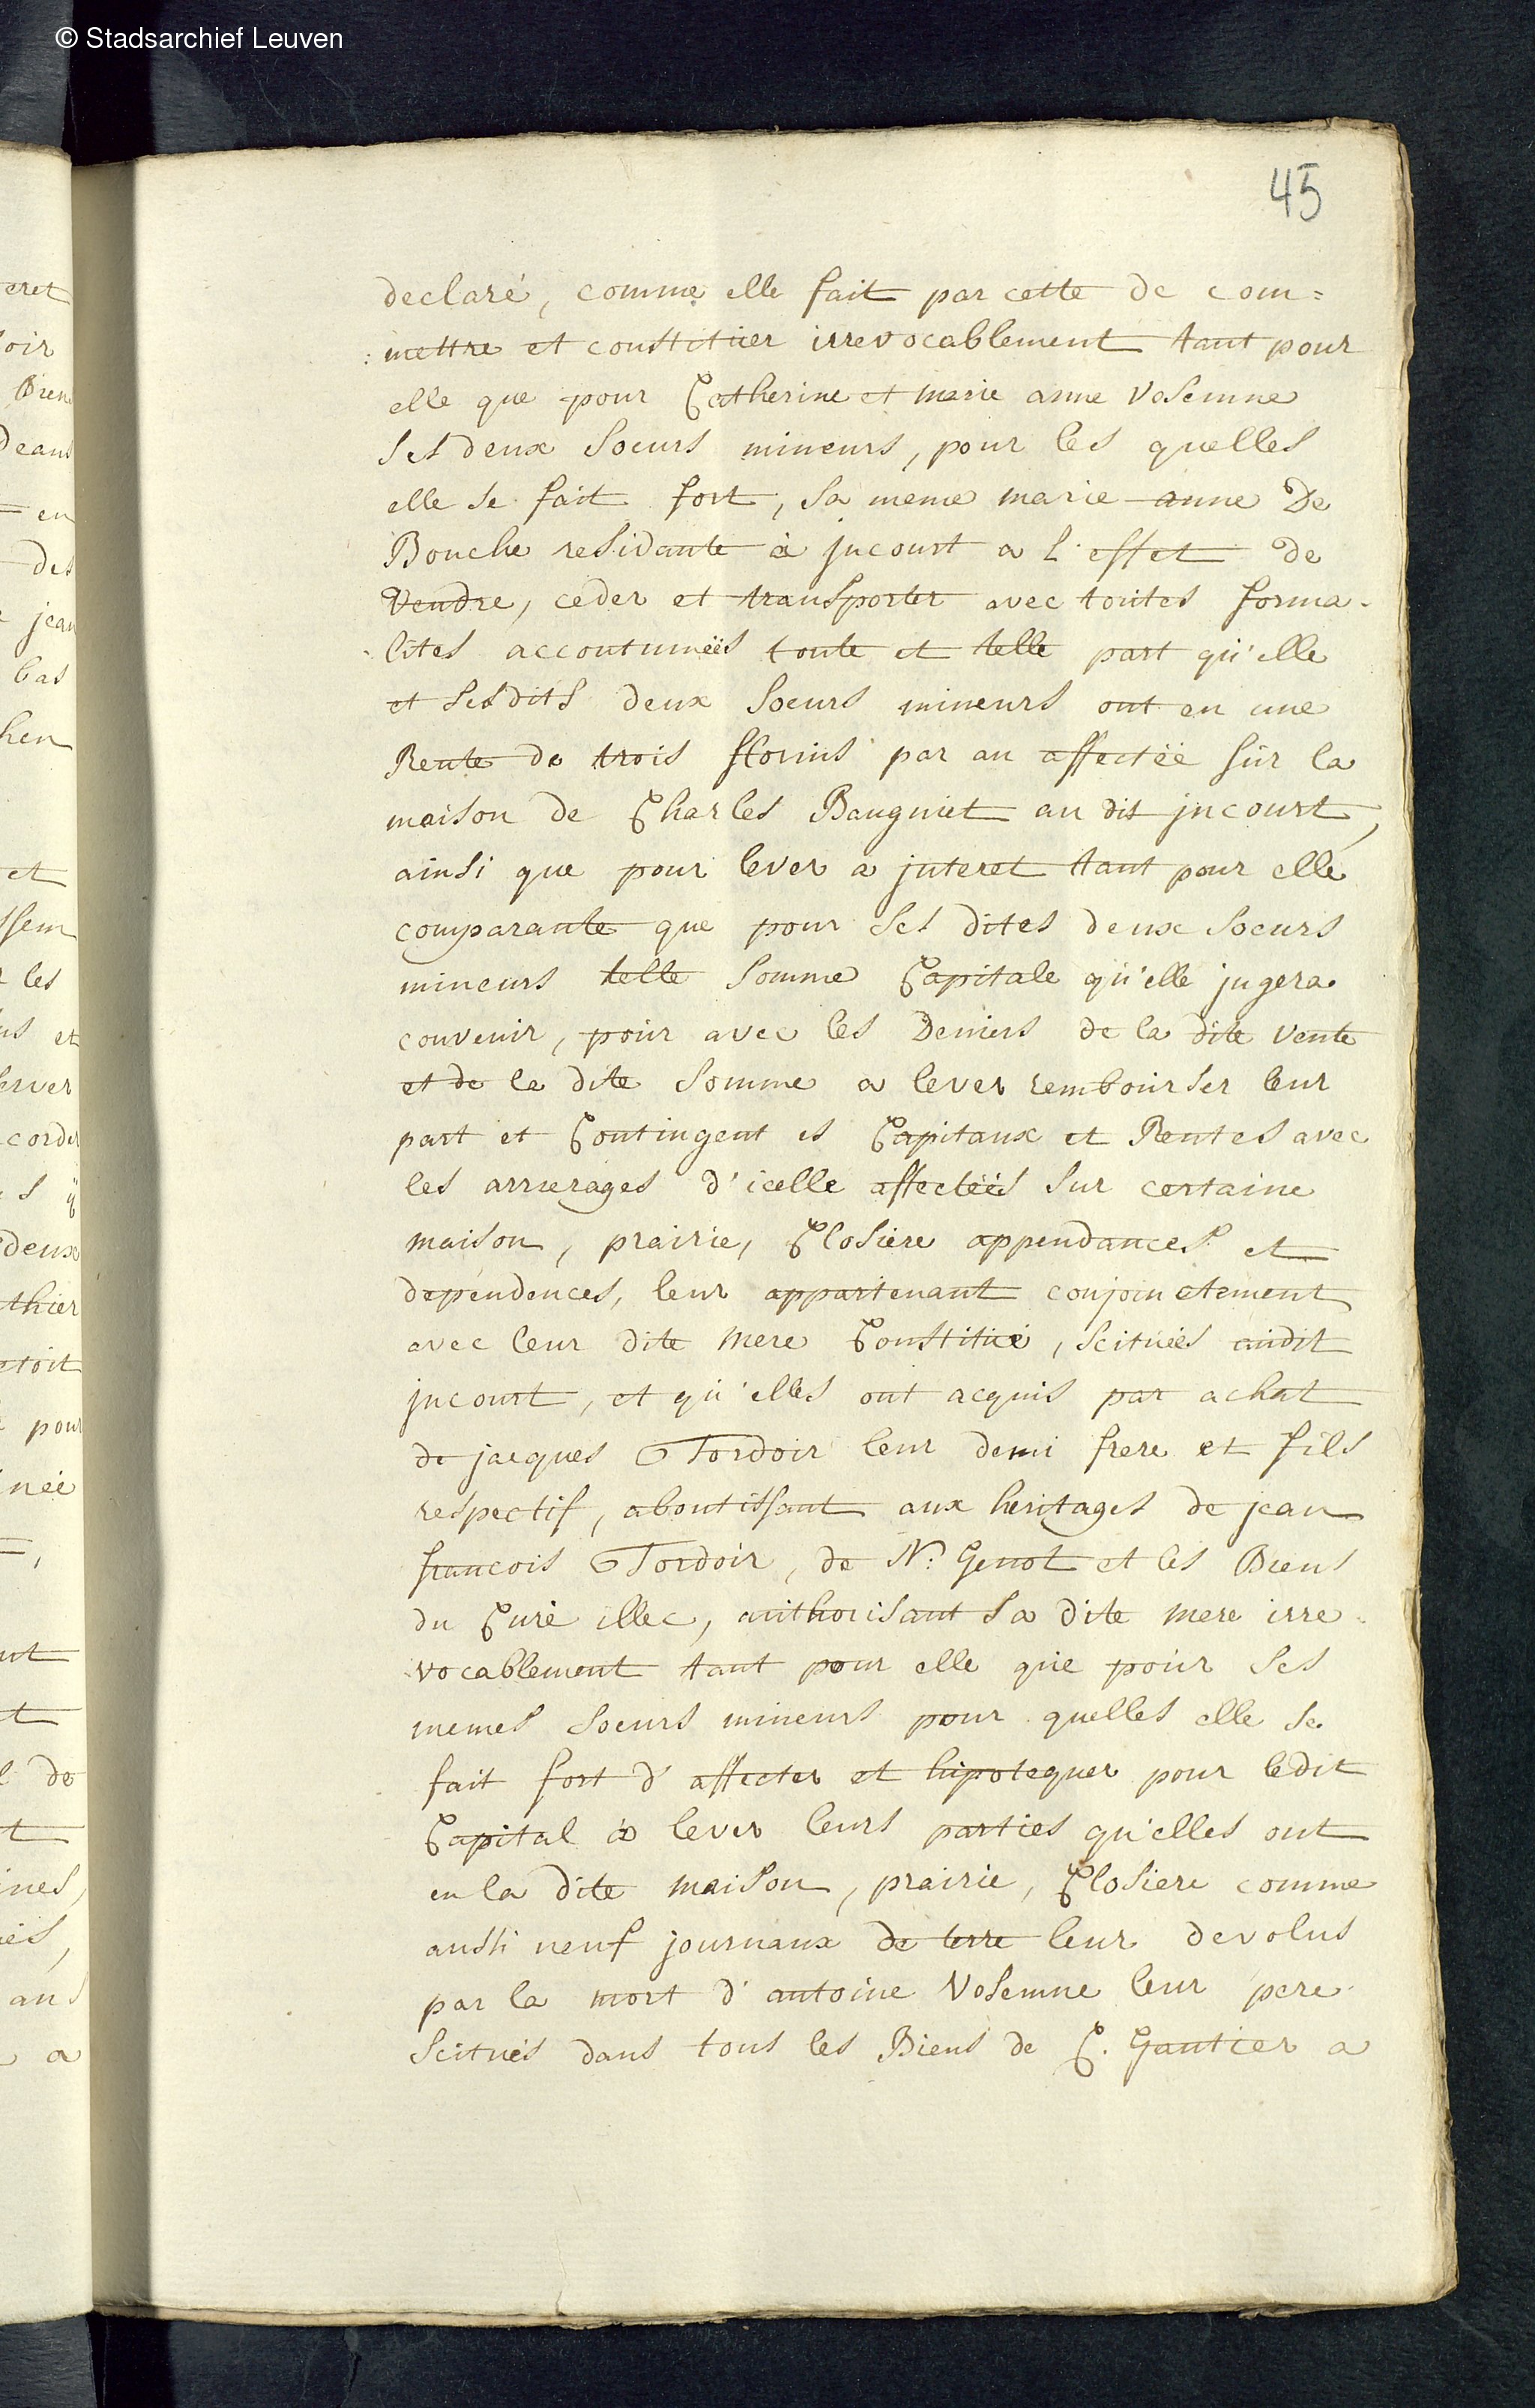 © Stadsarchief Leuven
45
declaré, comme elle fait par cette de com=
:mettre et constituer irrevocablement tant pour
elle que pour Catherine et marie anne Vosemne
ses deux soeurs mineurs, pour les quelles
elle se fait fort, sa meme marie anne De
Bouche residante à jncourt a l'effet de
vendre, ceder et transporter avec toutes forma-
-lites accoutumeés toute et telle part qu'elle
et ses dits deux soeurs mineurs ont en une
Rente de trois florins par an affectée sur la
maison de Charles Baugniet au dit jncourt,
ainsi que pour lever a jnteret tant pour elle
comparante que pour ses dites deux soeurs
mineurs telle somme Capitale qu'elle jugera
convenir, pour avec les Deniers de la dite vente
et de la dite somme a lever rembourser leur
part et Contingent es Capitaux et Rentes avec
les arrierages d'icelle affecteés sur certaine
maison, prairie, Closiere appendances et
dependences, leur appartenant conjoinctement
avec leur dite mere Constitué, scitueés audit
jncourt, et qu'elles ont acquis par achat
de jacques Tordoir leur demi frere et fils
respectif, aboutissant aux heritages de jean
francois Tordoir, de N: Genot et les Biens
du Curé illec, authorisant sa dite mere irre-
-vocablement tant pour elle que pour ses
memes soeurs mineurs pour quelles elle se
fait fort d'affecter et hipotequer pour ledit
Capital à lever leurs parties qu'elles ont
en la dite maison, prairie, Closiere comme
aussi neuf journaux de terre leur devolus
par la mort d'antoine Vosemne leur pere
scitués dans tous les Biens de C. Gautier a